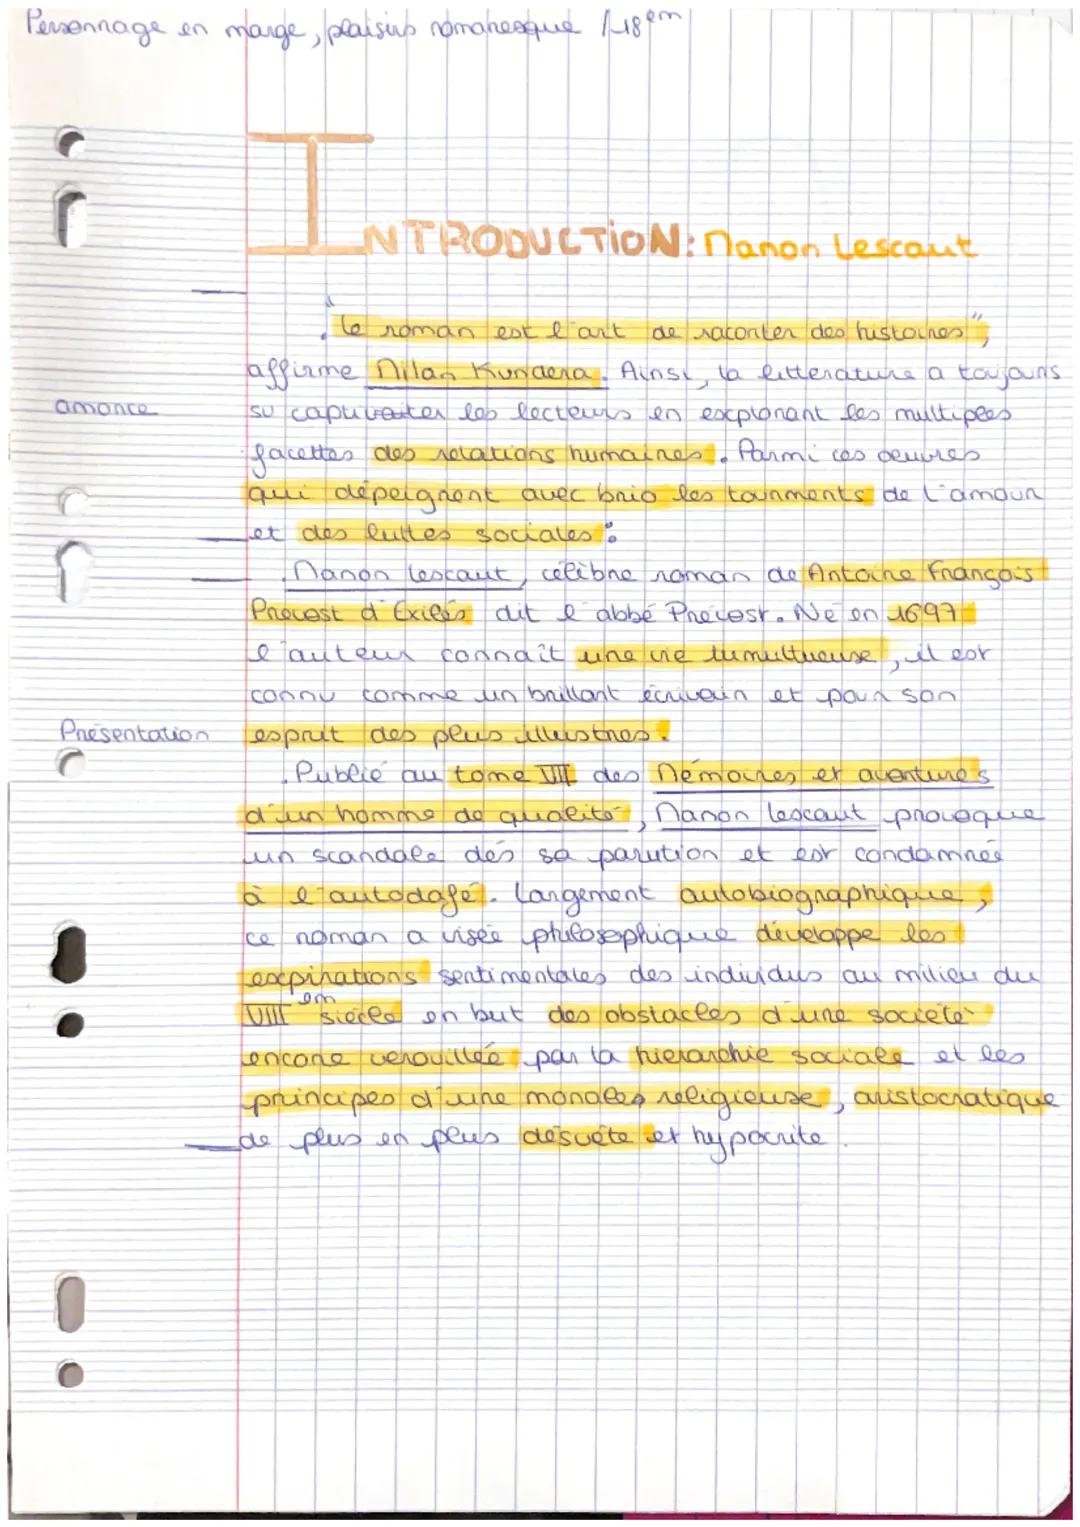 Personnage en marge, plaisirs romanesque / 18em
INTRODUCTION: Manon Lescaut
"le roman est l'art de raconter des histoires",
affirme Milan Kundera. Ainsi, la littérature a toujours
amorce
su captiver les lecteurs en explorant les multiples
facettes des relations humaines. Parmi ces oeuvres
qui dépeignent avec brio les tourments de l'amour
et des luttes sociales :
Manon Lescaut, célèbre roman de Antoine François
Prévost d'Exilés dit l'abbé Prévost. Né en 1697
l'auteur connaît une vie tumultueuse, il est
connu comme un brillant écrivain et pour son
Présentation
esprit des plus illustres.
. Publié au tome VII des Mémoires et aventures
d'un homme de qualité, Manon Lescaut provoque
un scandale dès sa parution et est condamnée
à l'autodafé. Largement autobiographique,
ce roman a visée philosophique développe les
expirations sentimentales des individus au milieu du
VIII em siècle en but des obstacles d'une société
encore verouillée par la hierarchie sociale et les
principes d'une morales religieuse, aristocratique
de plus en plus désuète et hypocrite.